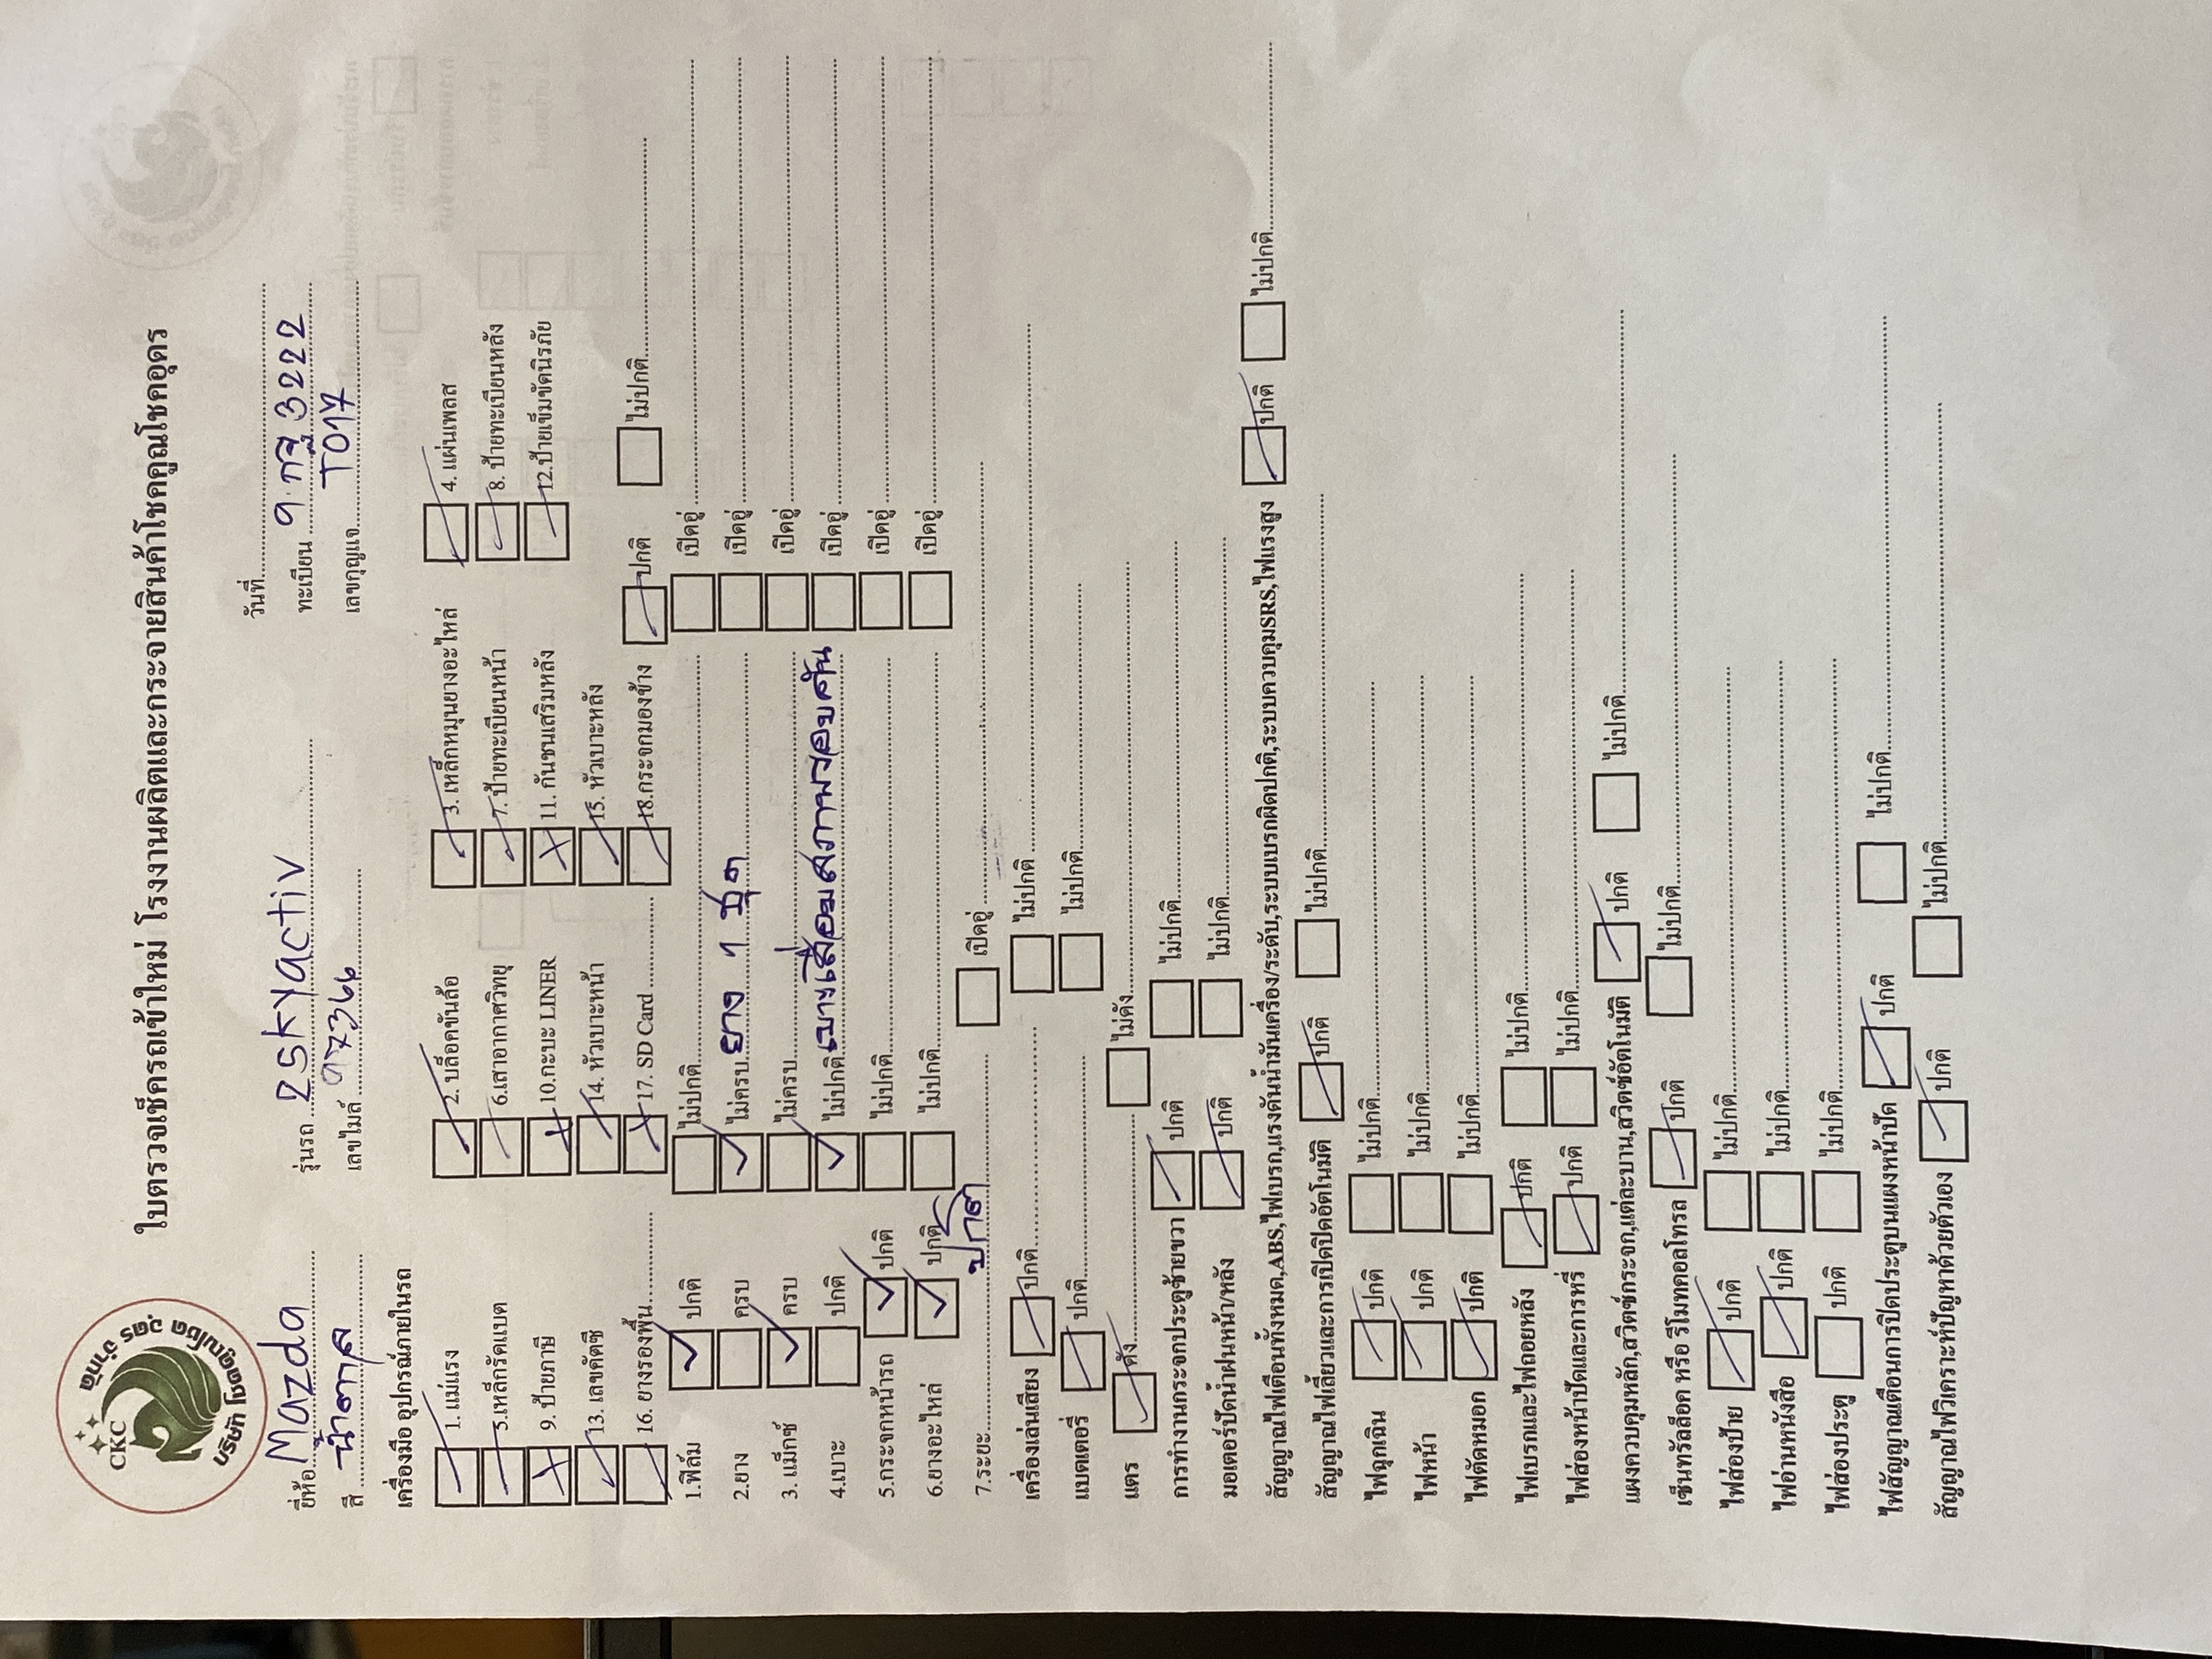 CKC
บริษัท โชคคูณโชค อุดร จำกัด
ใบตรวจเช็ครถเข้าใหม่ โรงงานผลิตและกระจายสินค้าโชคคูณโชคอุดร
วันที่
ยี่ห้อ Mazda รุ่นรถ 2 skyactiv ทะเบียน 3222
สี น้ำตาล เลขไมล์ 97366 เลขกุญแจ T017
เครื่องมือ อุปกรณ์ภายในรถ
1. แม่แรง 2. บล็อคขันล้อ 3. เหล็กหมุนยางอะไหล่ 4. แผ่นเพลส
5.เหล็กรัดแบต 6.เสาอากาศวิทยุ 7. ป้ายทะเบียนหน้า 8. ป้ายทะเบียนหลัง
9. ป้ายภาษี 10.กะบะ LINER 11. กันชนเสริมหลัง 12.ป้ายเข็มขัดนิรภัย
13. เลขคัตซี 14. หัวเบาะหน้า 15. หัวเบาะหลัง
16. ยางรองพื้น 17. SD Card 18.กระจกมองข้าง ปกติ ไม่ปกติ
1.ฟิล์ม ปกติ ไม่ปกติ เปิดอู่
2.ยาง ครบ ไม่ครบ ยาง 1 ชุด เปิดอู่
3. แม็กซ์ ครบ ไม่ครบ เปิดอู่
4.เบาะ ปกติ ไม่ปกติ เบาะเสื่อมสภาพรอบคัน เปิดอู่
5.กระจกหน้ารถ ปกติ ไม่ปกติ เปิดอู่
6.ยางอะไหล่ ปกติ ไม่ปกติ เปิดอู่
7.ระยะ ปกติ เปิดอู่
เครื่องเล่นเสียง ปกติ ไม่ปกติ
แบตเตอรี่ ปกติ ไม่ปกติ
แตร ดัง ไม่ดัง
การทำงานกระจกประตูซ้ายขวา ปกติ ไม่ปกติ
มอเตอร์ปัดน้ำฝนหน้า/หลัง ปกติ ไม่ปกติ
สัญญาณไฟเตือนทั้งหมด,ABS,ไฟเบรก,แรงดันน้ำมันเครื่อง/ระดับ,ระบบเบรกผิดปกติ,ระบบควบคุมSRS,ไฟแรงสูง ปกติ ไม่ปกติ
สัญญาณไฟเลี้ยวและการเปิดปิดอัตโนมัติ ปกติ ไม่ปกติ
ไฟฉุกเฉิน ปกติ ไม่ปกติ
ไฟหน้า ปกติ ไม่ปกติ
ไฟตัดหมอก ปกติ ไม่ปกติ
ไฟเบรกและไฟถอยหลัง ปกติ ไม่ปกติ
ไฟส่องหน้าปัดและการหรี่ ปกติ ไม่ปกติ
แผงควบคุมหลัก,สวิตซ์กระจก,แต่ละบาน,สวิตซ์อัตโนมัติ ปกติ ไม่ปกติ
เซ็นทรัลล็อค หรือ รีโมทคอลโทรล ปกติ ไม่ปกติ
ไฟส่องป้าย ปกติ ไม่ปกติ
ไฟอ่านหนังสือ ปกติ ไม่ปกติ
ไฟส่องประตู ปกติ ไม่ปกติ
ไฟสัญญาณเตือนการปิดประตูบนแผงหน้าปัด ปกติ ไม่ปกติ
สัญญาณไฟวิเคราะห์ปัญหาด้วยตัวเอง ปกติ ไม่ปกติ